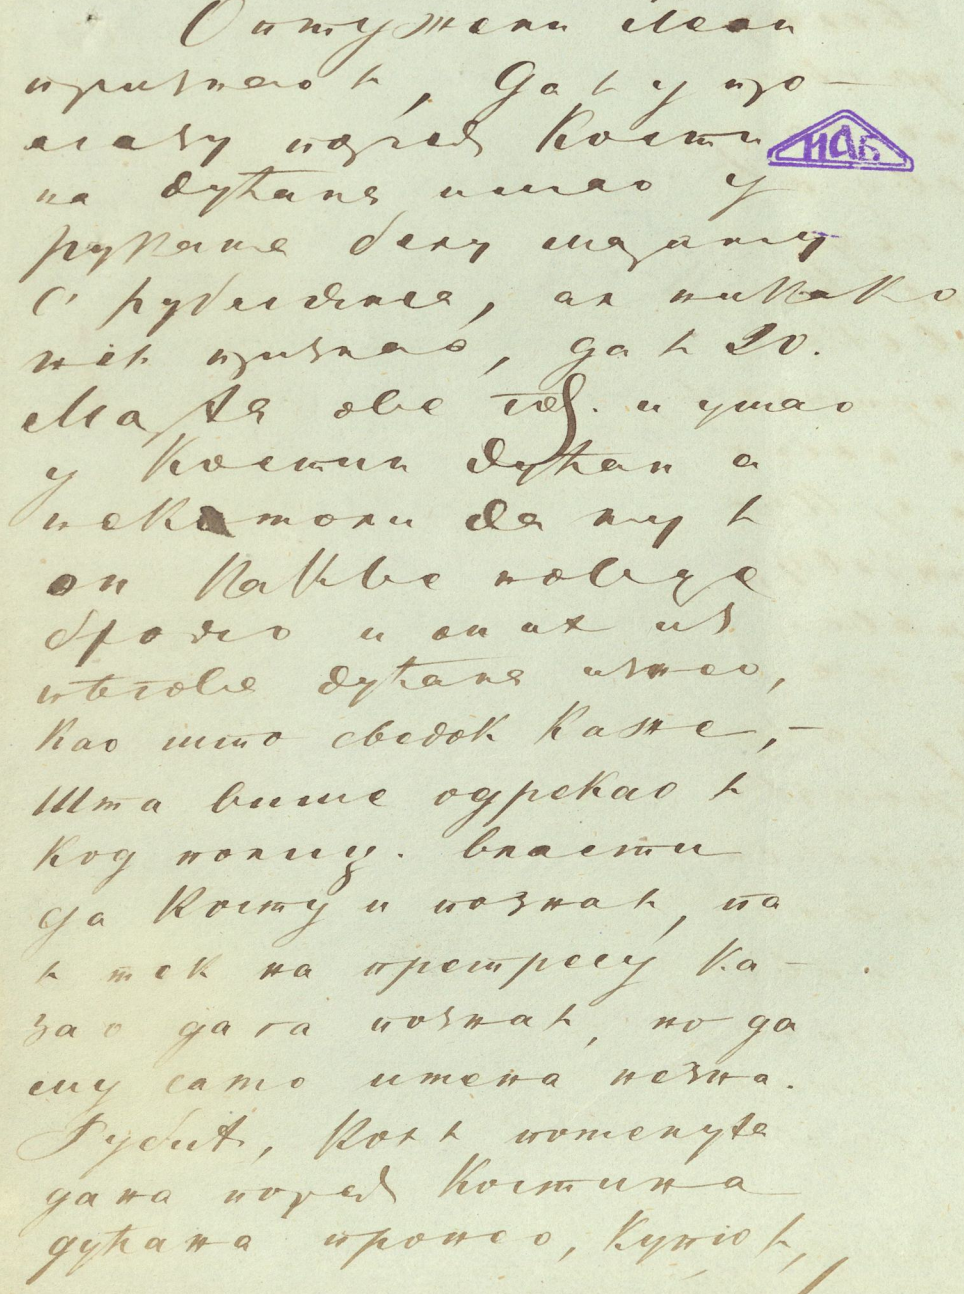 Оптужени Меан
признао ѣ, да ѣ у про-
лазу поред Кости
на дућана имао у
рукама белу мараму
с' рубљима, ал никако
није признао, да ѣ 20.
Марта ове год. и ушао
у Костин дућан а
некамоли да му ѣ
он какве новце
бројо и он их из
његова дућана изнео,
као што сведок каже,-
Шта више одрекао ѣ
код полиц. власти
да Косту и познаѣ, па
ѣ тек на претресу ка-
зао да га познаѣ, но да
му само имена незна.
Рубић, којѣ поменута
дана поред Костина
дућана пронео, купіо ѣ,
НАБ